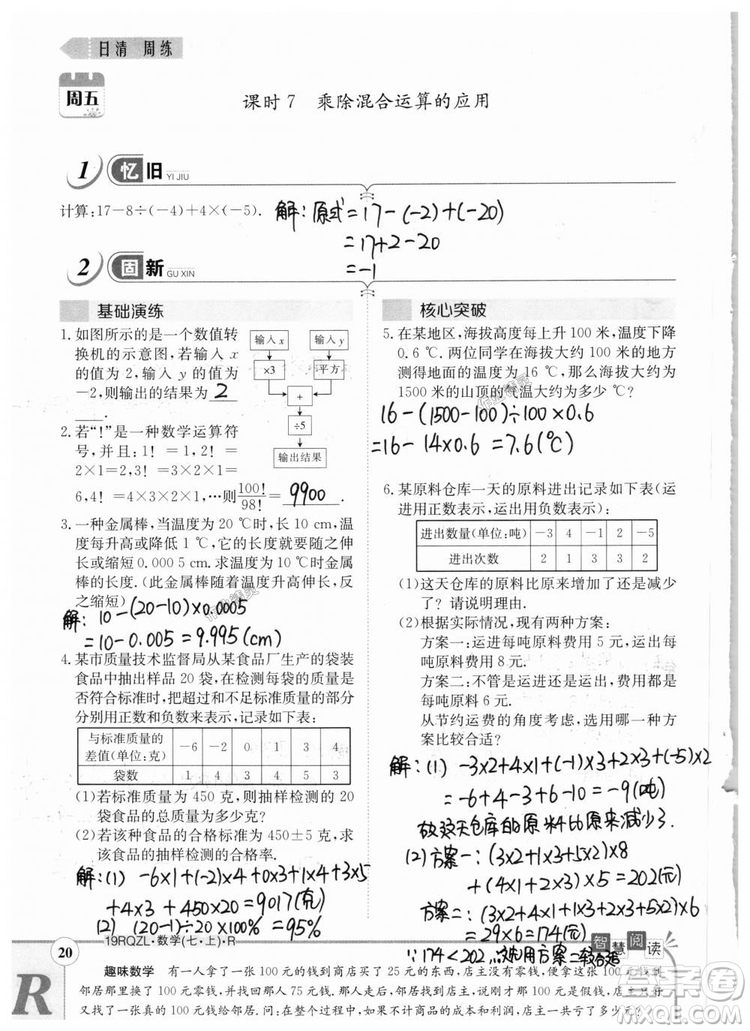 日清 周练
周五
课时7 乘除混合运算的应用
1 忆旧 YI JIU
计算:17-8÷(-4)+4×(-5).
解:原式=17-(-2)+(-20)
=17+2-20
=-1
2 固新 GU XIN
基础演练
1. 如图所示的是一个数值转
换机的示意图,若输入 x
的值为 2,输入 y 的值为
-2,则输出的结果为 2
.
输入 x 输入 y
×3 平方
+
÷5
输出结果
2. 若“!”是一种数学运算符
号,并且:1!=1,2!=
2×1=2,3!=3×2×1=
6,4!=4×3×2×1,…则100!/98!= 9900 .
3. 一种金属棒,当温度为 20 ℃时,长 10 cm,温
度每升高或降低 1 ℃,它的长度就随之伸
长或缩短 0.000 5 cm,求当温度为 10 ℃时金属
棒的长度.(此金属棒随温度升高伸长,反之缩短)
解:10-(20-10)×0.0005
=10-0.005=9.995(cm)
4. 某市质量技术监督局从某食品厂生产的袋装
食品中抽出样品 20 袋,在检测每袋的质量是
否符合标准时,把超过和不足标准质量的部分
分别用正数和负数来表示,记录如下表:
与标准质量的差值(单位:克) -6 -2 0 1 3 4
袋数 1 4 3 4 5 3
(1)若标准质量为 450 克,则抽样检测的 20
袋食品的总质量为多少克?
(2)若该种食品的合格标准为 450±5 克,求
该食品的抽样检测的合格率.
解:(1) -6×1+(-2)×4+0×3+1×4+3×5
+4×3+450×20=9017(克)
(2) 19÷20×100%=95%
核心突破
5. 在某地区,海拔高度每上升 100 米,温度下降
0.6 ℃.两位同学在海拔为 100 米的地方
测得的温度为 16 ℃,那么海拔高度为
1500 米的山顶的气温大约为多少 ℃?
16-(1500-100)÷100×0.6
=16-14×0.6=7.6(℃)
6. 某原料仓库一天的原料进出记录如下表(运
进用正数表示,运出用负数表示):
进出数量(单位:吨) -3 4 -1 2 -5
进出次数 2 1 3 3 2
(1)这天仓库的原料比原来增加了还是减少
了?请说明理由.
(2)根据实际情况,现有两种方案:
方案一:运进每吨原料费用 5 元,运出每
吨原料费用 8 元.
方案二:不管是运进还是运出,费用都是
每吨原料 6 元.
从节约运费的角度考虑,选用哪一种方案
比较合适?
解:(1) -3×2+4×1+(-1)×3+2×3+(-5)×2
=-6+4-3+6-10=-9(吨)
故这天仓库的原料比原来减少了.
(2)方案一:(3×2+1×3+5×2)×8
+(4×1+2×3)×5=202(元)
方案二:(3×2+4×1+1×3+2×3+5×2)
=29×6=174(元)
∵174<202 ∴选用方案二较合适
智慧阅读
20
19RQZL·数学(七·上)·R
趣味数学 有一人拿了一张 100 元的钱到商店买了 25 元的东西,店主没有零钱,便拿这张 100 元钱到隔壁
邻居那里换了 100 元零钱,并找回那人 75 元钱.那人拿着东西和零钱走了.过了一会儿,邻居说 100 元是假钞,店主
又找了一张 100 元钱给邻居.问:在这个过程中,如果不计商品的成本和利润,店主一共亏了多少元?
R
答案圈
MXQE.COM